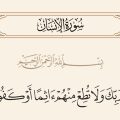 سُورَةُ الْإِنْسَانِ
بِسْمِ اللَّهِ الرَّحْمَٰنِ الرَّحِيمِ
رَبِّكَ وَلَا تُطِعْ مِنْهُمْ ءَاثِمًا أَوْ كَفُو